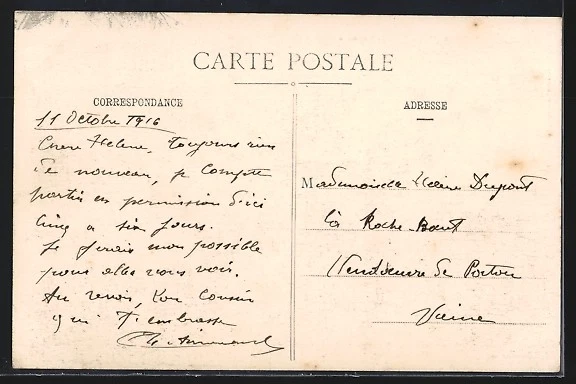 CARTE POSTALE
CORRESPONDANCE
11 Octobre 1916
Chere Helene, toujours rien
de nouveau, je compte
partir en permission d'ici
cinq a six jours.
Je ferais mon possible
pour aller vous voir.
Au revoir, ton cousin
qui t'embrasse
ADRESSE
Mademoiselle Hélène Dupont
la Roche
Vendeuvre de Poitou
Vienne